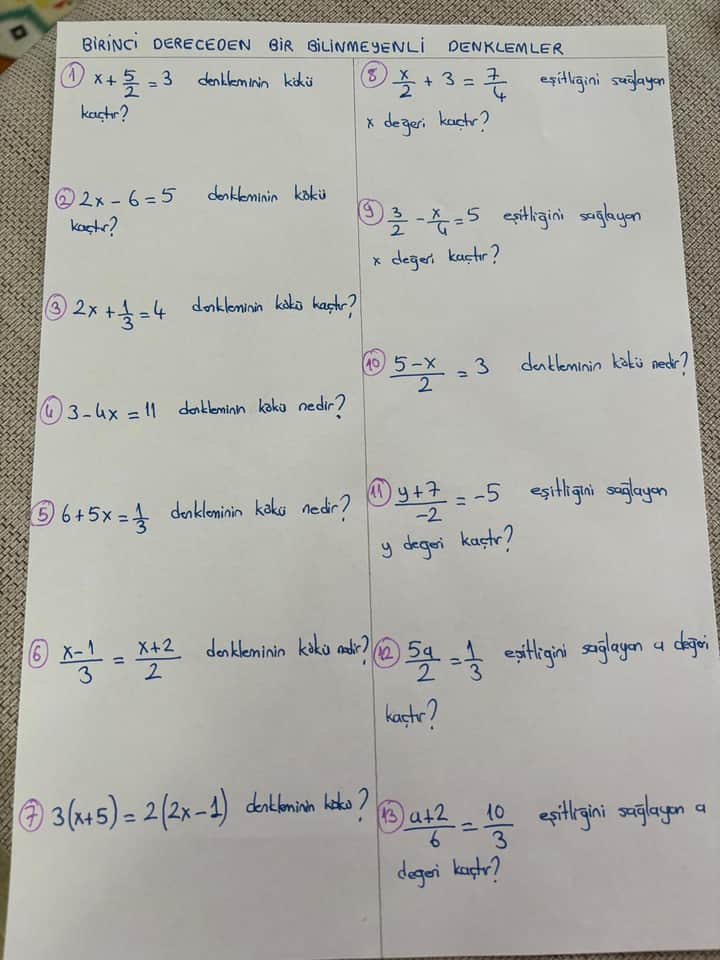 BİRİNCİ DERECEDEN BİR BİLİNMEYENLİ DENKLEMLER
1 x + 5/2 = 3 denkleminin kökü
kaçtır?
2 2x - 6 = 5 denkleminin kökü
kaçtır?
3 2x + 1/3 = 4 denkleminin kökü kaçtır?
4 3 - 4x = 11 denkleminin kökü nedir?
5 6 + 5x = 1/3 denkleminin kökü nedir?
6 x-1/3 = x+2/2 denkleminin kökü nedir?
7 3(x+5) = 2(2x-1) denkleminin kökü?
8 x/2 + 3 = 7/4 eşitliğini sağlayan
x değeri kaçtır?
9 3/2 - x/4 = 5 eşitliğini sağlayan
x değeri kaçtır?
10 5-x/2 = 3 denkleminin kökü nedir?
11 y+7/-2 = -5 eşitliğini sağlayan
y değeri kaçtır?
12 5a/2 = 1/3 eşitliğini sağlayan a değeri
kaçtır?
13 a+2/6 = 10/3 eşitliğini sağlayan a
değeri kaçtır?